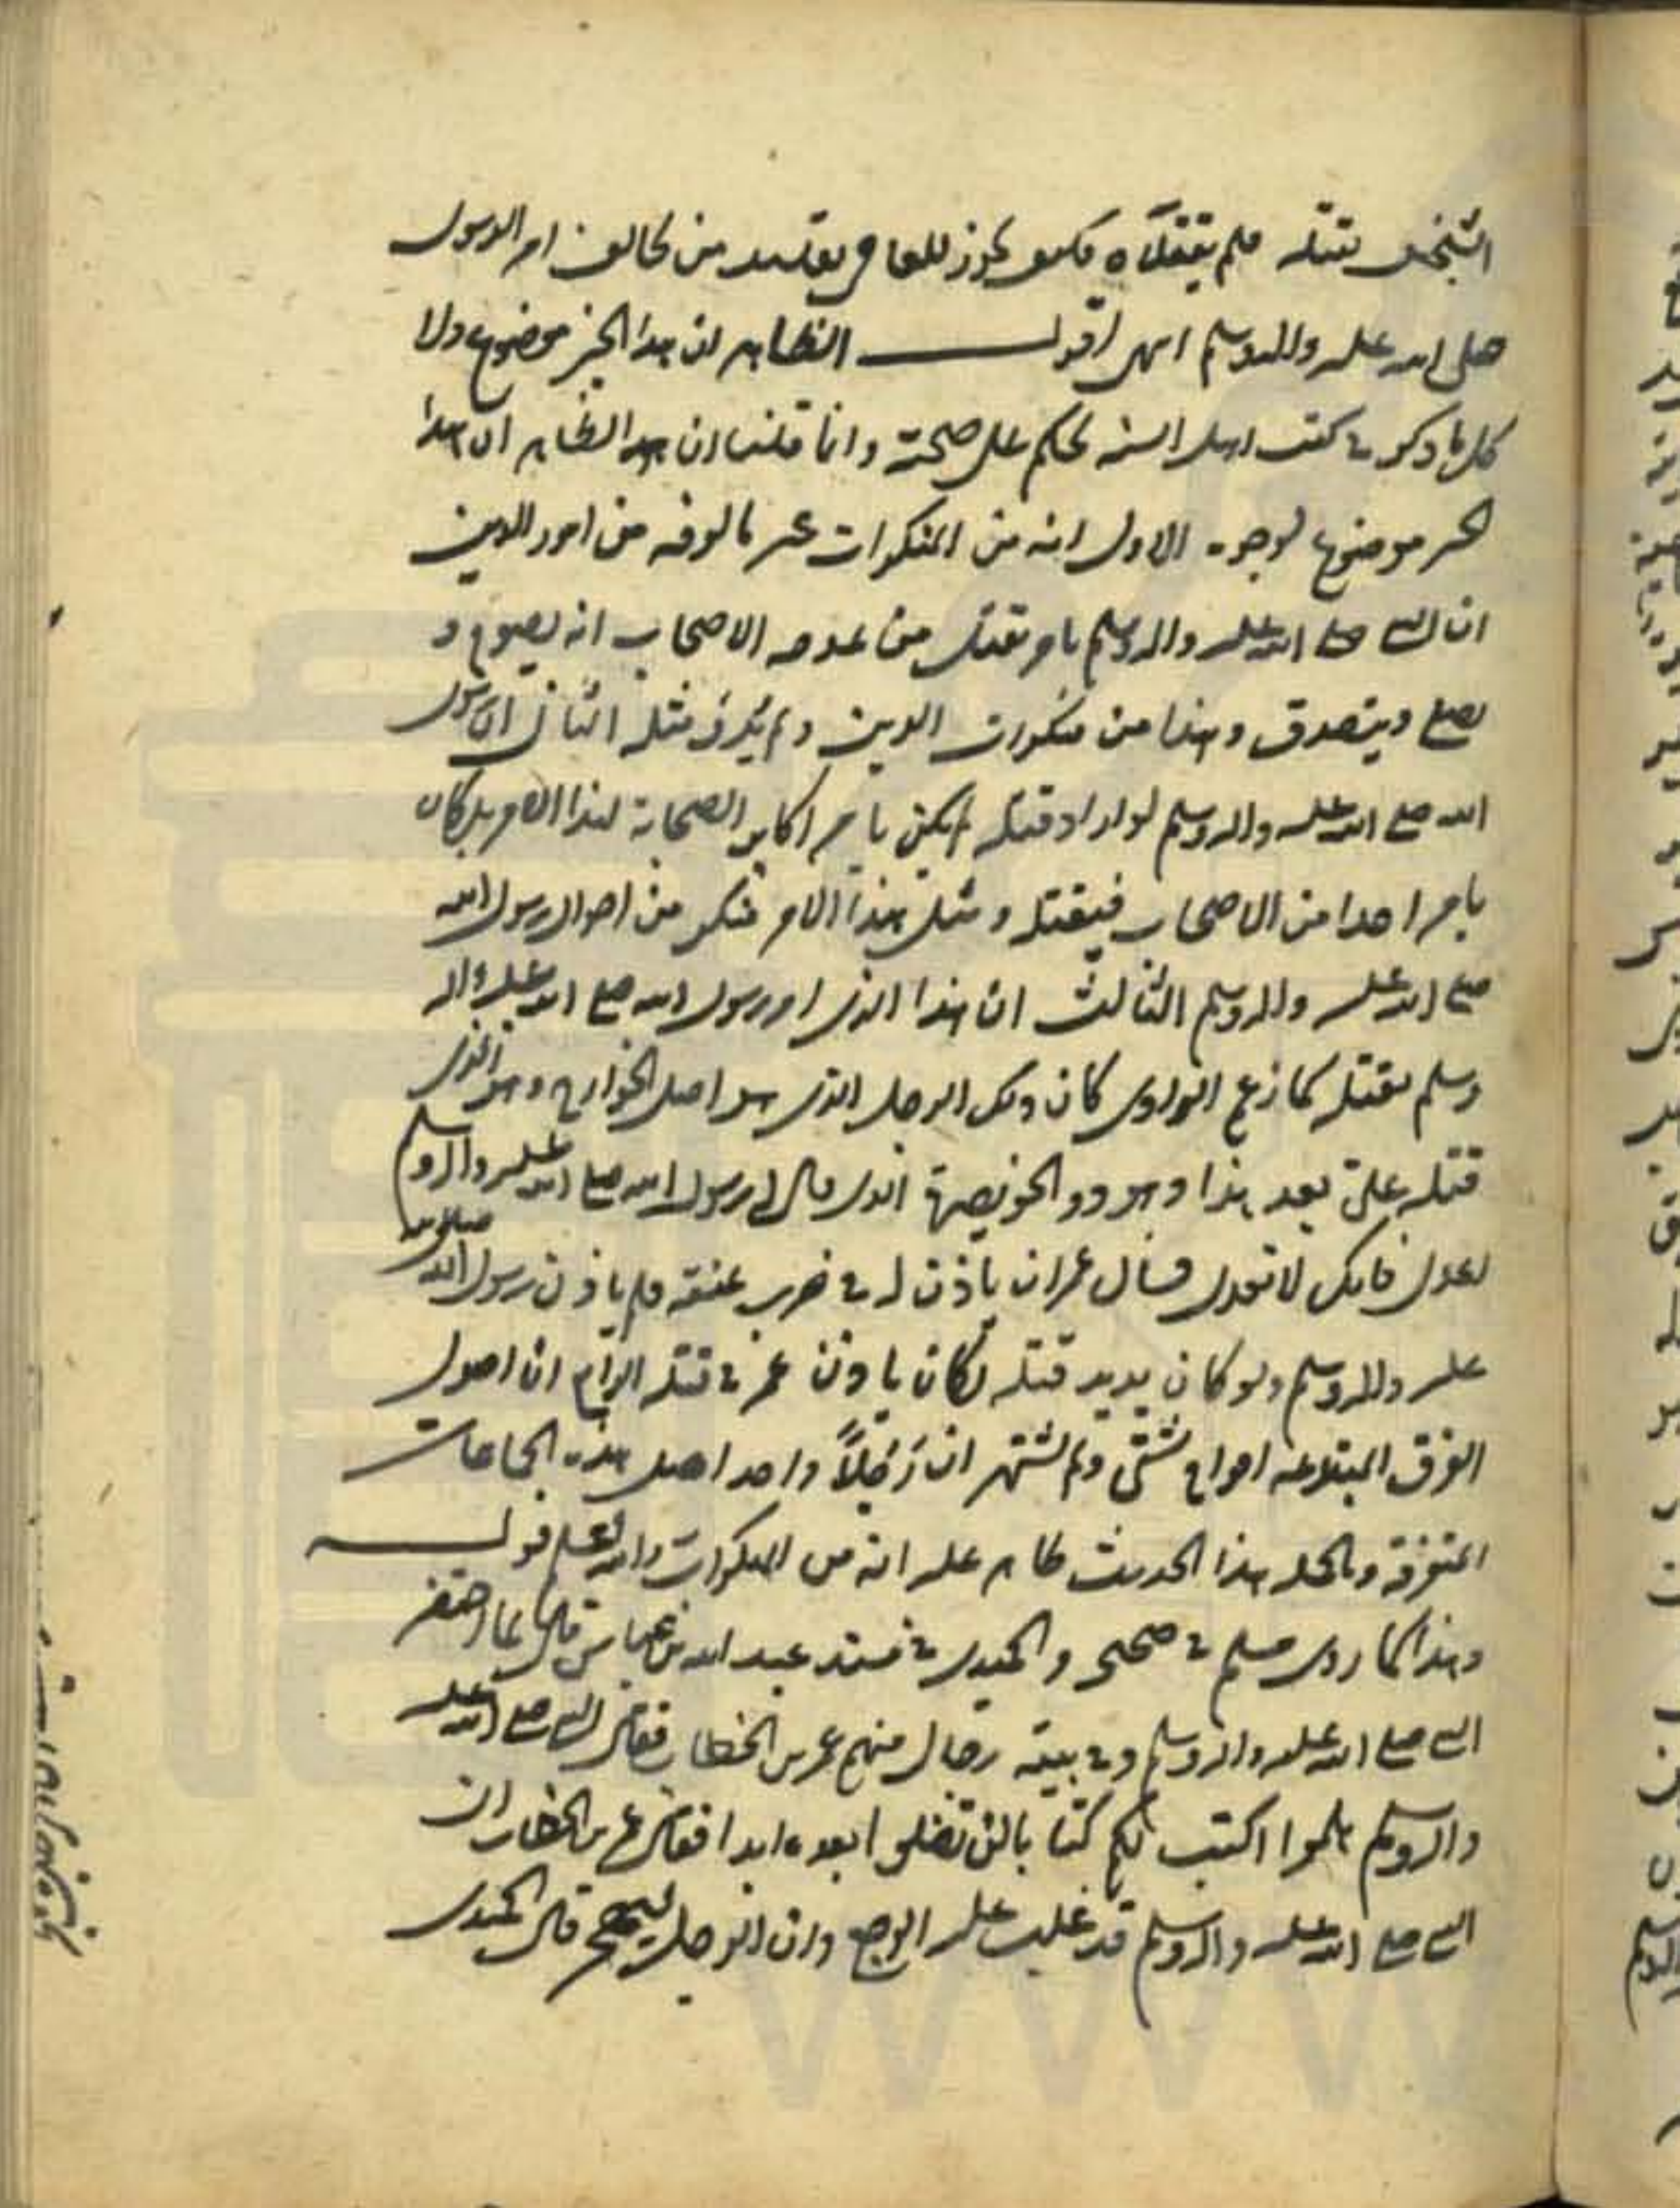 الشيخين بقتله فلم يقتلاه فكيف يجوز للعامي تقليد من يخالف امر الرسول
صلى الله عليه واله وسلم انتهى اقول الظاهر ان هذا الخبر موضوع ولا
كل ما ذكر في كتب اهل السنه يحكم على صحته وانما قلنا ان هذا الظاهر ان هذا
الخبر موضوع لوجوه الاول انه من المنكرات غير مالوفه من امور الدين
ان النبي صلى الله عليه واله وسلم يامر بقتل من يمدحه الاصحاب انه يصوم و
يصلي ويتصدق وهذا من منكورات الدين ولم يعرف مثله الثاني ان رسول
الله صلى الله عليه واله وسلم لو اراد قتله لم يكن يامر اكابر الصحابة لهذا الامر بل كان
يامر احدا من الاصحاب فيقتله ومثل هذا الامر منكر من احوال رسول الله
صلى الله عليه واله وسلم الثالث ان هذا الذي امر رسول الله صلى الله عليه واله
وسلم بقتله كما زعم الراوي كان ذلك الرجل الذي هو اصل الخوارج وهو الذي
قتله علي بعد هذا وهو ذو الخويصرة الذي قال لرسول الله صلى الله عليه واله وسلم
اعدل فانك لا تعدل فسال عمر ان ياذن له في ضرب عنقه فلم ياذن رسول الله صلى الله
عليه واله وسلم ولو كان يريد قتله لكان ياذن عمر في قتله الرابع ان اصول
الفرق المبتدعه انواع شتى ولم يشتهر ان رجلاً واحد اصل هذه الجماعات
المتفرقة وبالجمله هذا الحديث ظاهر عليه انه من المنكرات والله اعلم قوله
وهذا كما روى مسلم في صحيحه والحميدي في مسند عبد الله بن عباس قال لما احتضر
النبي صلى الله عليه واله وسلم وفي بيته رجال منهم عمر بن الخطاب فقال النبي صلى الله عليه
واله وسلم هلموا اكتب لكم كتابا لن تضلوا بعده ابدا فقال عمر بن الخطاب ان
النبي صلى الله عليه واله وسلم قد غلب عليه الوجع وان الرجل ليهجر قال الحميدي